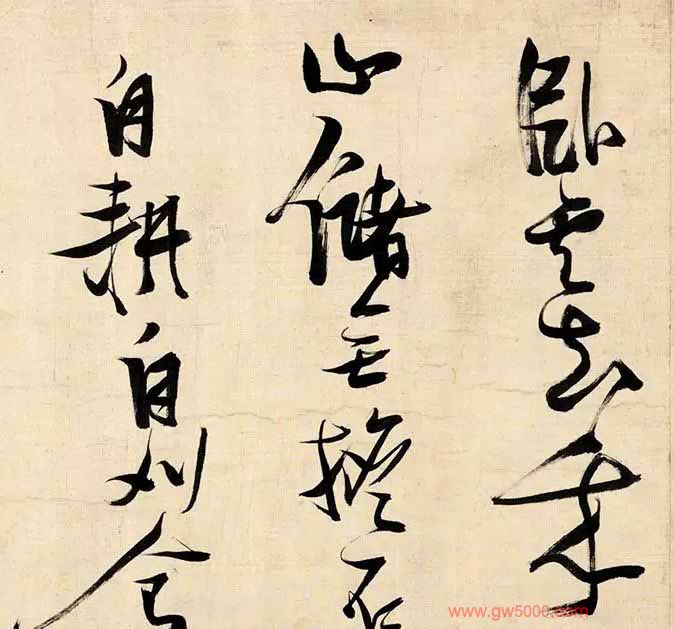 臥雲
山儲無擔石
自耕自刈食
www.gw5000.com